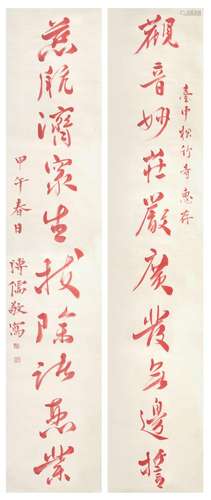 觀音妙莊嚴廣發無邊誓
臺中松竹寺惠存
慈航濟眾生拔除諸惡業
甲午春日
溥儒敬寫